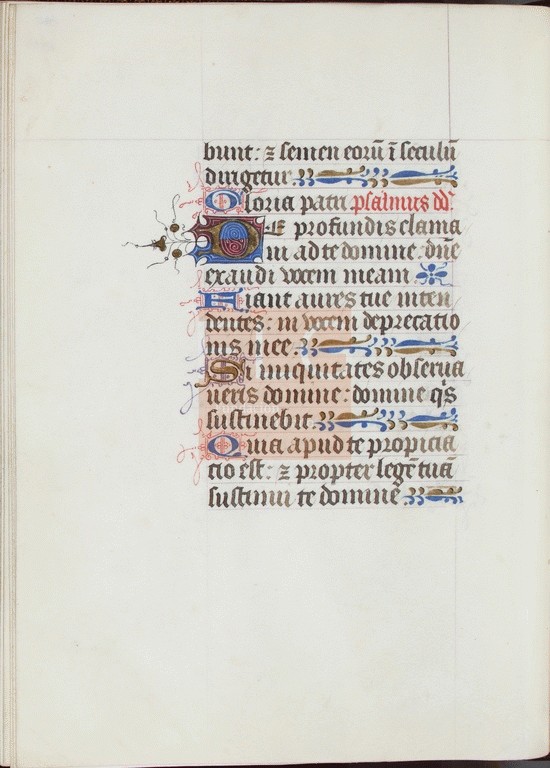 bunt: ⁊ semen eorū ī seculū
dirigetur
Gloria patri psalmus dd̄.
DE profundis clama
ui ad te domine: dn̄e
exaudi vocem meam
Fiant aures tue inten
dentes: in vocem deprecatio
nis mee.
Si iniquitates obserua
ueris domine: domine q̄s
sustinebit.
Quia apud te propicia
cio est: ⁊ propter legē tuā
sustinui te domine